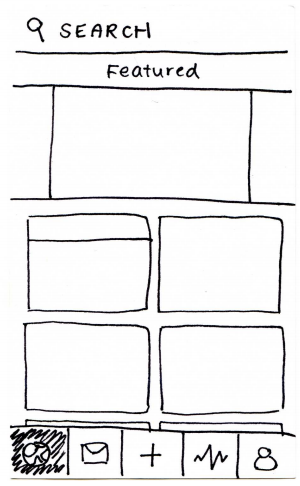 SEARCH
Featured